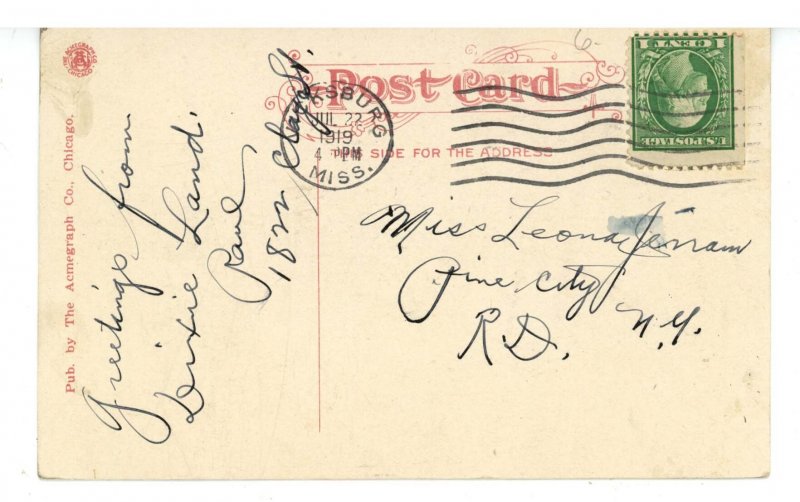 THE ACMEGRAPH CO.
CHICAGO
Pub. by The Acmegraph Co., Chicago.
Greetings from
Dixie Land.
Paul
1822 Clay St.
Post Card
SIDE FOR THE ADDRESS
KSBURG
JUL 22
4 PM
1919
MISS.
6
1 CENT 1
U.S. POSTAGE
Miss Leona Jenram
Pine City
R.D. N.Y.